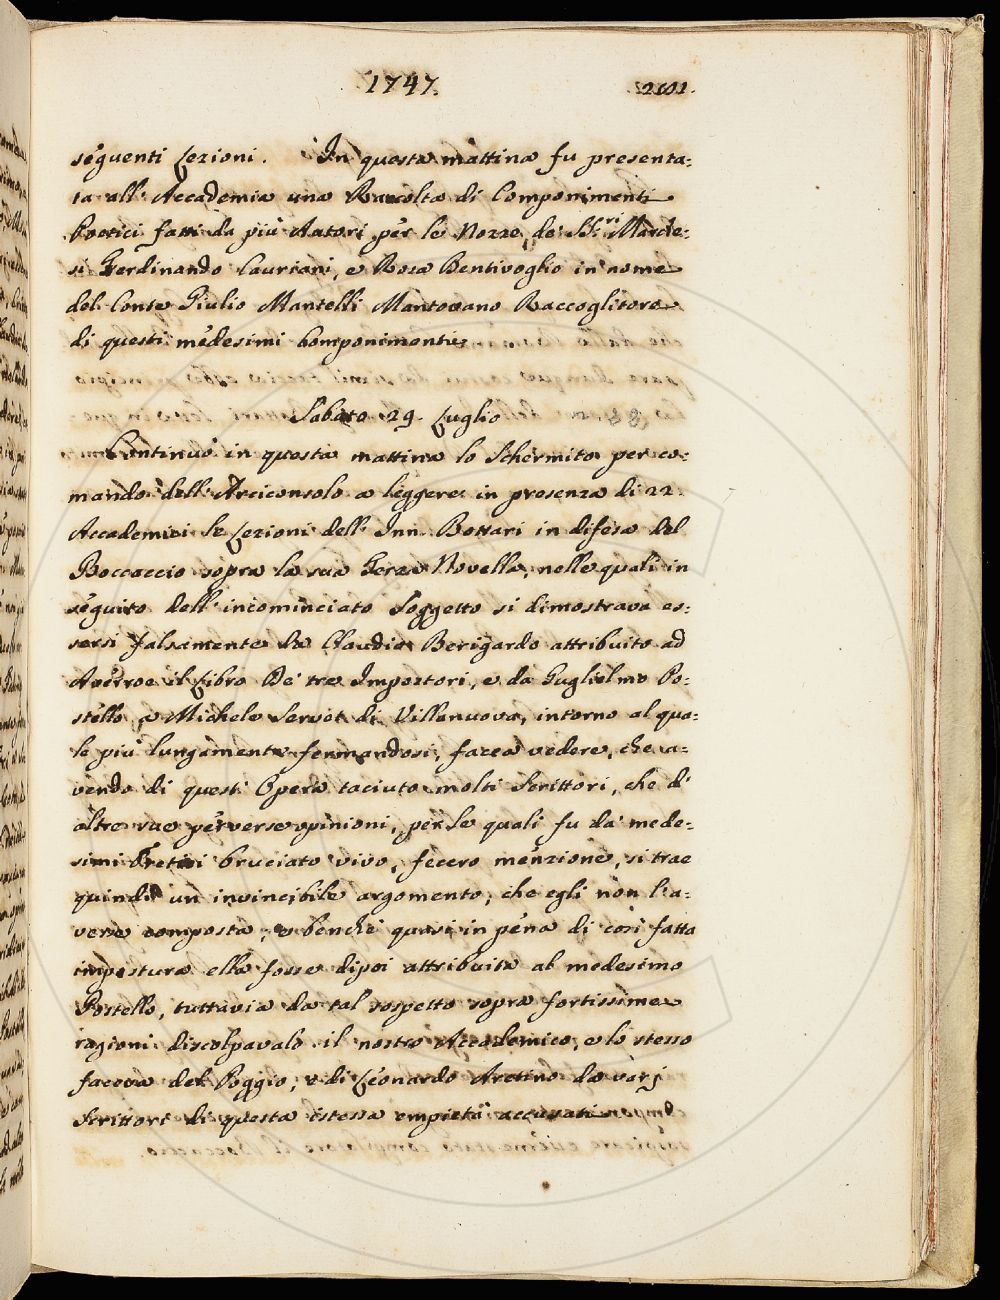 1747.
201.
seguenti Lezioni. In questa mattina fu presenta-
ta all' Accademia una Raccolta di Componimenti
Poetici fatti da più Autori per le Nozze de' SS.ri Marche-
si Ferdinando Cauriani, e Rosa Bentivoglio in nome
del Conte Giulio Mantelli Mantovano Raccoglitore
di questi medesimi Componimenti.
Sabato 29. Luglio
Continuò in questa mattina lo Schermito per co-
mando dell' Arciconsolo a leggere in presenza di 22.
Accademici le Lezioni dell' Inn. Bottari in difesa del
Boccaccio sopra la sua Terza Novella, nelle quali in
seguito dell' incominciato Soggetto si dimostrava es-
sersi falsamente da Claudio Berigardo attribuito ad
Averroe il Libro De' tre Impostori, e da Guglielmo Po-
stello a Michele Servet di Villanuova, intorno al qua-
le più lungamente fermandosi, facea vedere, che a-
vendo di quest' Opera taciuto molti Scrittori, che di
altre sue perverse opinioni, per le quali fu da' mede-
simi Eretici bruciato vivo, fecero menzione, si trae
quindi un invincibile argomento, che egli non l' a-
vesse composta, e benchè quasi in pena di così fatta
impostura ella fosse dipoi attribuita al medesimo
Postello, tuttavia da tal sospetto sopra fortissime
ragioni discolpavalo il nostro Accademico, e lo stesso
faceva del Poggio, e di Leonardo Aretino da varj
Scrittori di questa istessa empietà accusati